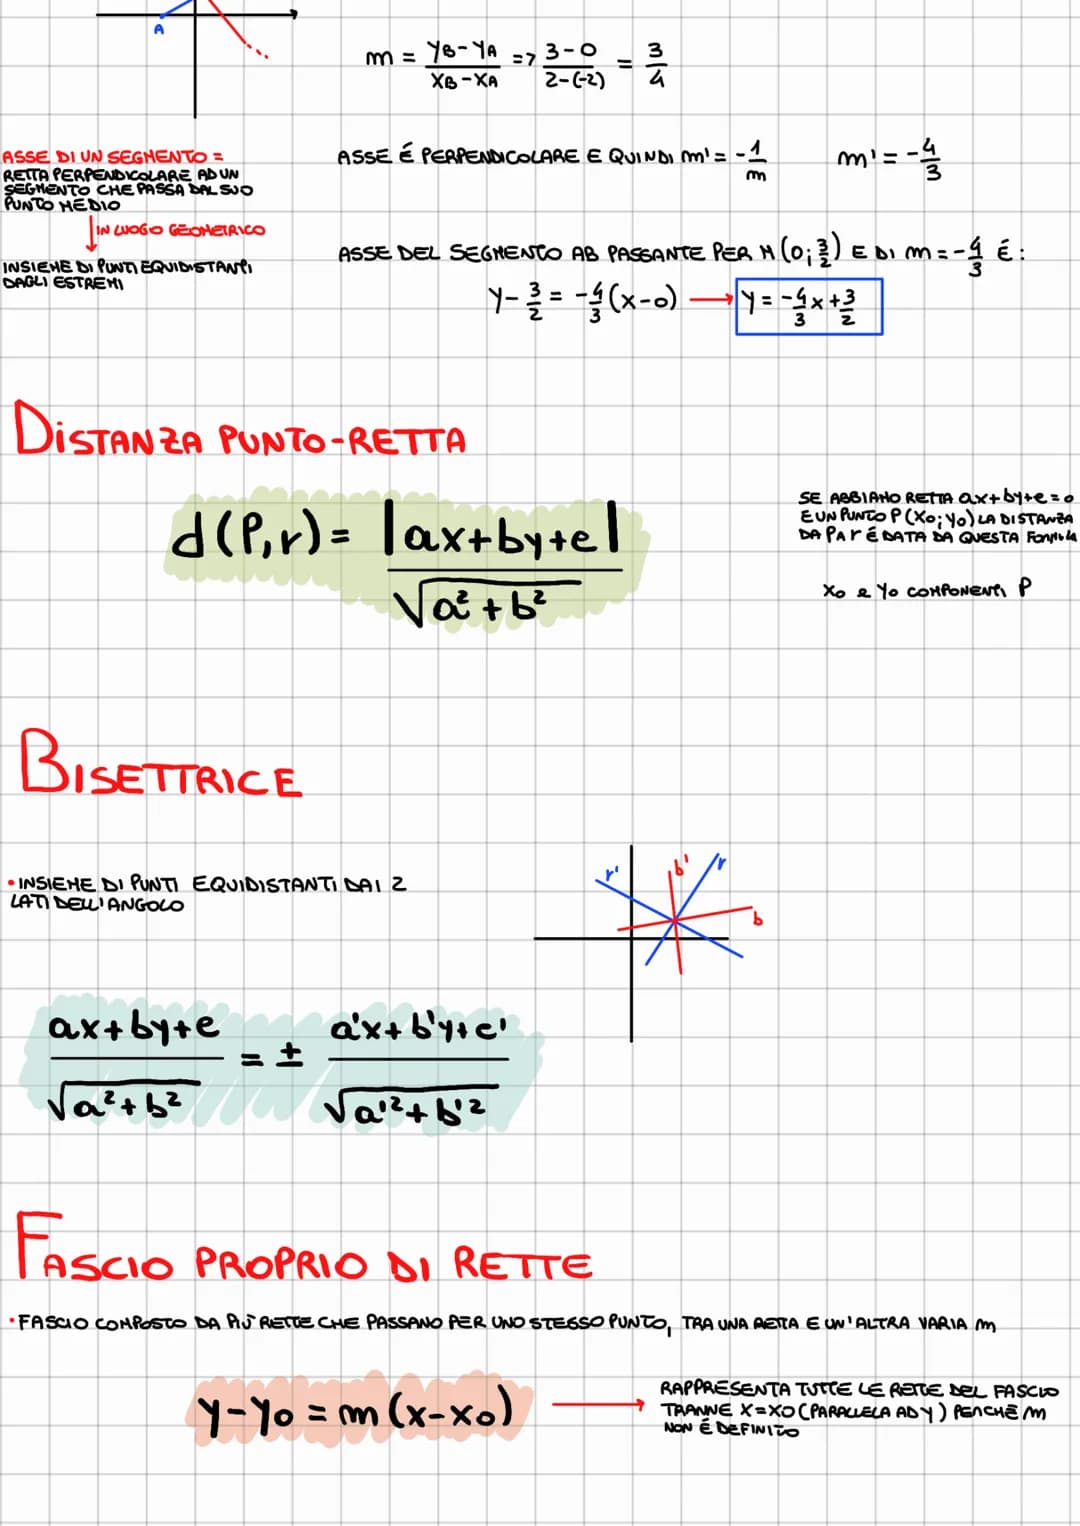 A
m = yB-yA / xB-xA => 3-0 / 2-(-2) = 3/4
ASSE DI UN SEGMENTO =
RETTA PERPENDICOLARE AD UN
SEGMENTO CHE PASSA DAL SUO
PUNTO MEDIO
IN LUOGO GEOMETRICO
INSIEME DI PUNTI EQUIDISTANTI
DAGLI ESTREMI
ASSE É PERPENDICOLARE E QUINDI m' = -1/m m' = -4/3
ASSE DEL SEGMENTO AB PASSANTE PER M (0; 3/2) E DI m = -4/3 É:
y - 3/2 = -4/3 (x-0) → y = -4/3 x + 3/2
DISTANZA PUNTO-RETTA
d(P,r) = |ax+by+c| / √a²+b²
SE ABBIAMO RETTA ax+by+c=0
E UN PUNTO P (x0; y0) LA DISTANZA
DA P A r É DATA DA QUESTA FORMULA
x0 e y0 COMPONENTI P
BISETTRICE
• INSIEME DI PUNTI EQUIDISTANTI DAI 2
LATI DELL'ANGOLO
r' b' r
b
ax+by+c / √a²+b² = ± a'x+b'y+c' / √a'²+b'²
FASCIO PROPRIO DI RETTE
• FASCIO COMPOSTO DA PIÚ RETTE CHE PASSANO PER UNO STESSO PUNTO, TRA UNA RETTA E UN'ALTRA VARIA m
y-y0 = m (x-x0)
RAPPRESENTA TUTTE LE RETTE DEL FASCIO
TRANNE X=X0 (PARALLELA AD Y) PERCHÉ m
NON É DEFINITO